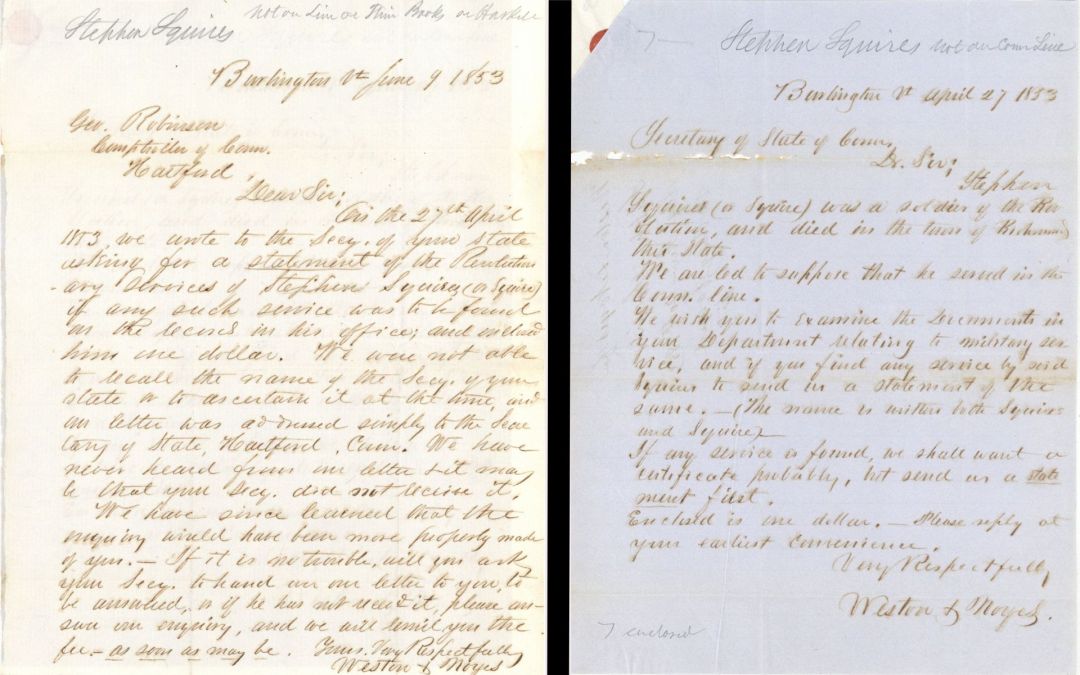 Not on Line or Thin Books or Haskell
Stephen Squires
Burlington Vt June 9 1853
Geo. Robinson
Comptroller of Conn.
Hartford.
Dear Sir;
On the 27th April
1853, we wrote to the Secy. of your state
asking for a statement of the Revolution
-ary Services of Stephen Squires (or Squire)
if any such service was to be found
on the record in his office; and enclosed
him one dollar. We were not able
to recall the name of the Secy. of your
state or to ascertain it at the time, and
our letter was addressed simply to the Secre
tary of State, Hartford, Conn. We have
never heard from our letter & it may
be that your Secy. did not receive it.
We have since learned that the
enquiry would have been more properly made
of you. — If it is no trouble, will you ask
your Secy. to hand our letter to you, to
be answered, or if he has not rec'd it, please an-
swer our enquiry, and we will remit you the
fee. — as soon as may be. Yours Very Respectfully
Weston & Noyes
7 — Stephen Squires not on Conn Line
Burlington Vt April 27 1853
Secretary of State of Conn,
Dr. Sir;
Stephen
Squires (or Squire) was a soldier of the Rev
olution, and died in the town of Richmond
this State.
We are led to suppose that he served in the
Conn. line.
We wish you to examine the Documents in
your Department relating to military ser
vice, and if you find any service by said
Squires to send us a statement of the
same. — (The name is written both Squires
and Squire) —
If any service is found, we shall want a
certificate probably, but send us a state
ment first.
Enclosed is one dollar. — Please reply at
your earliest convenience.
Very Respectfully
Weston & Noyes.
7 enclosed